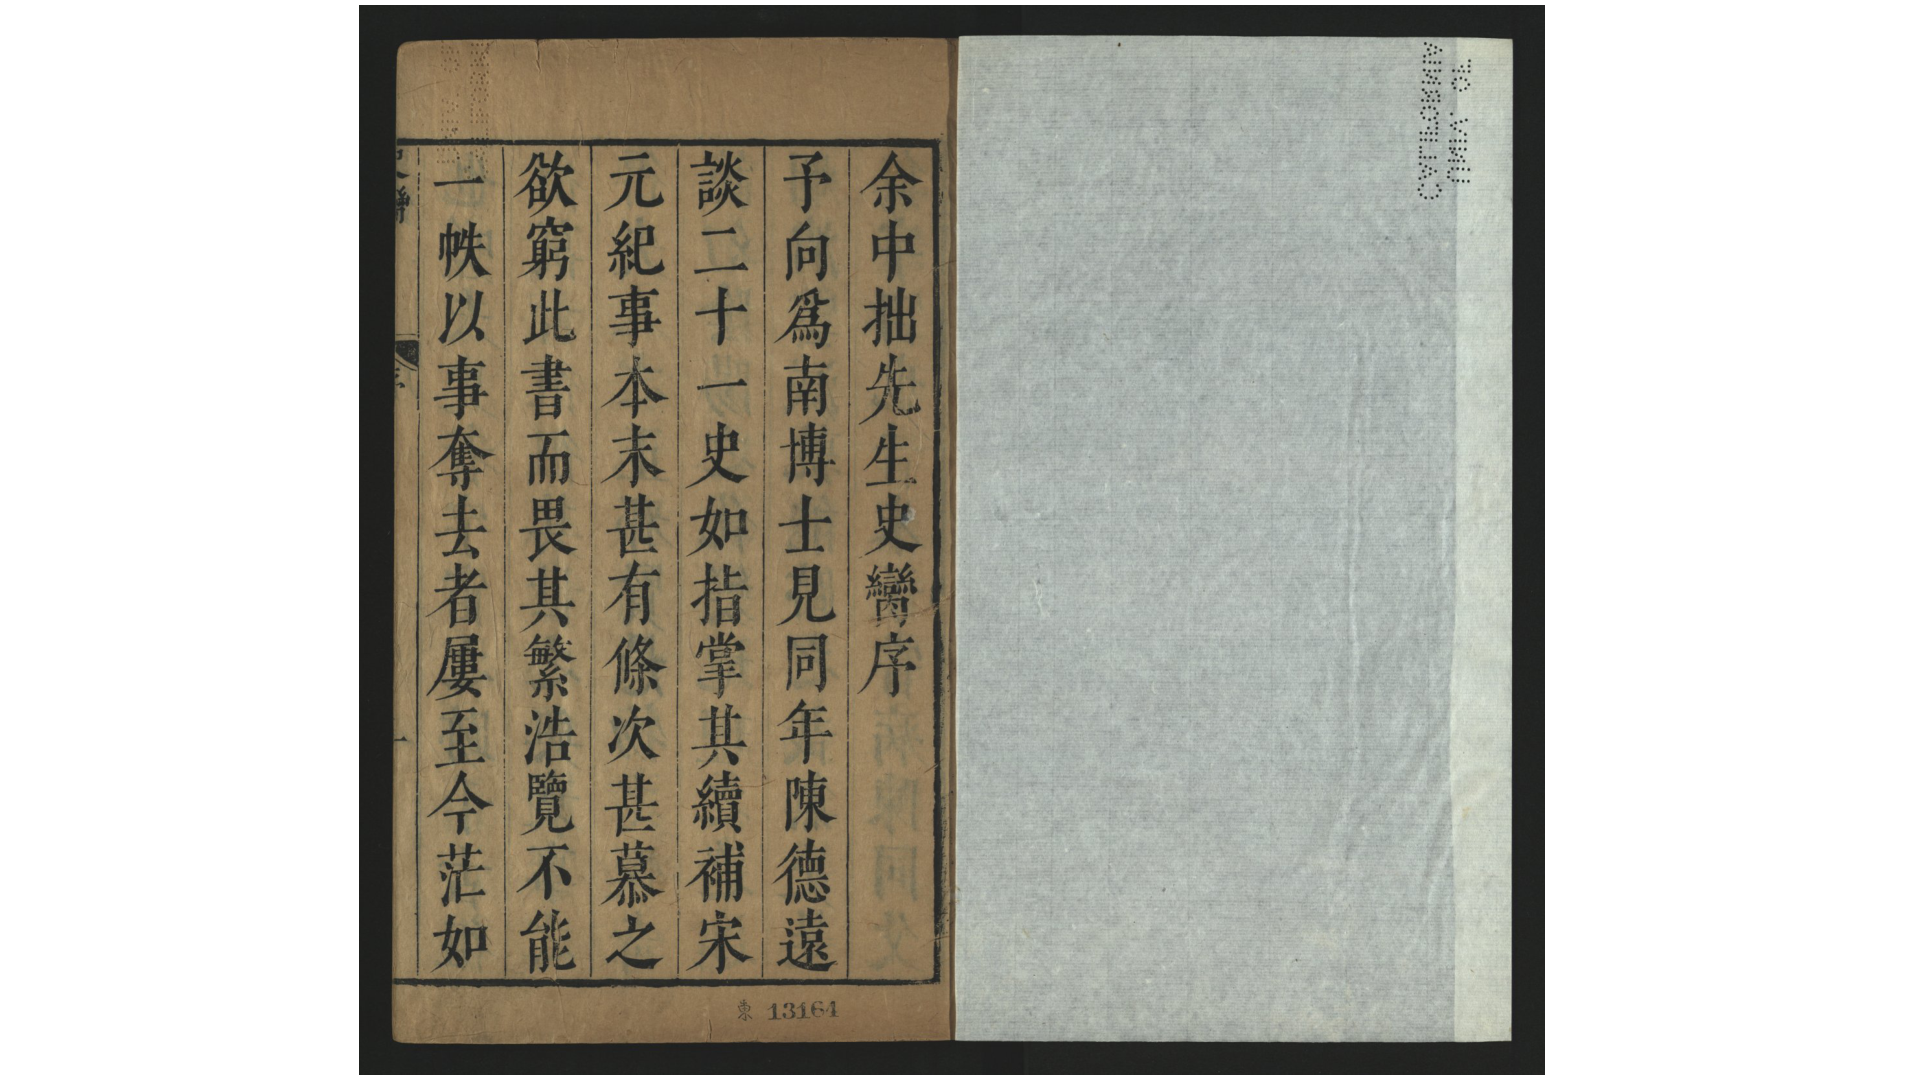 余中拙先生史臠序
予向爲南博士見同年陳德遠
談二十一史如指掌其續補宋
元紀事本末甚有條次甚慕之
欲窮此書而畏其繁浩覽不能
一帙以事奪去者屢至今茫如
一
東 13164
UNIV. OF
CALIFORNIA